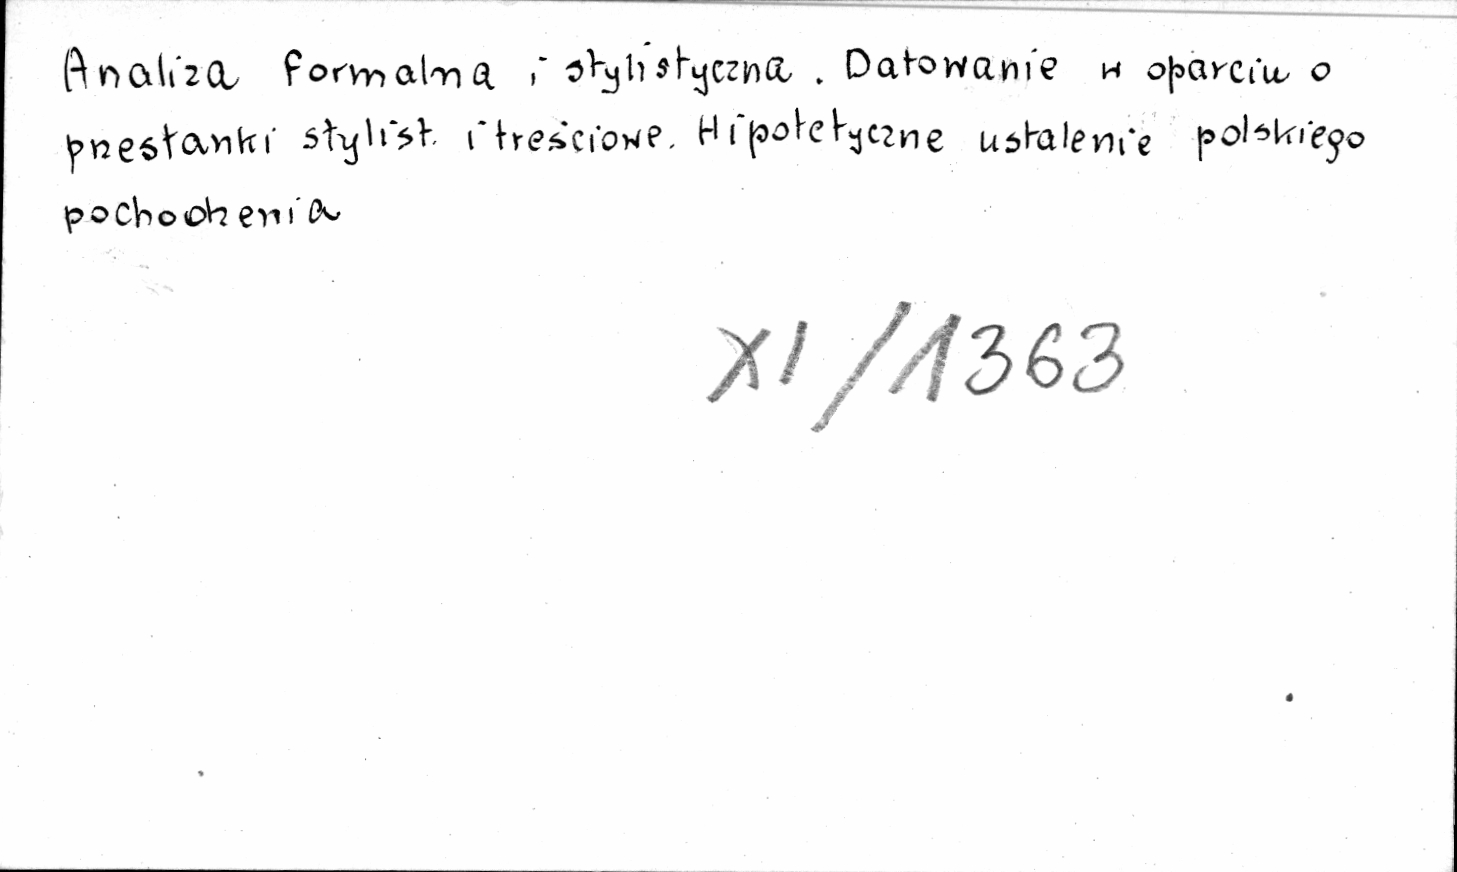 Analiza formalna i stylistyczna. Datowanie w oparciu o
przesłanki stylist. i treściowe. Hipotetyczne ustalenie polskiego
pochodzenia
XI/1363